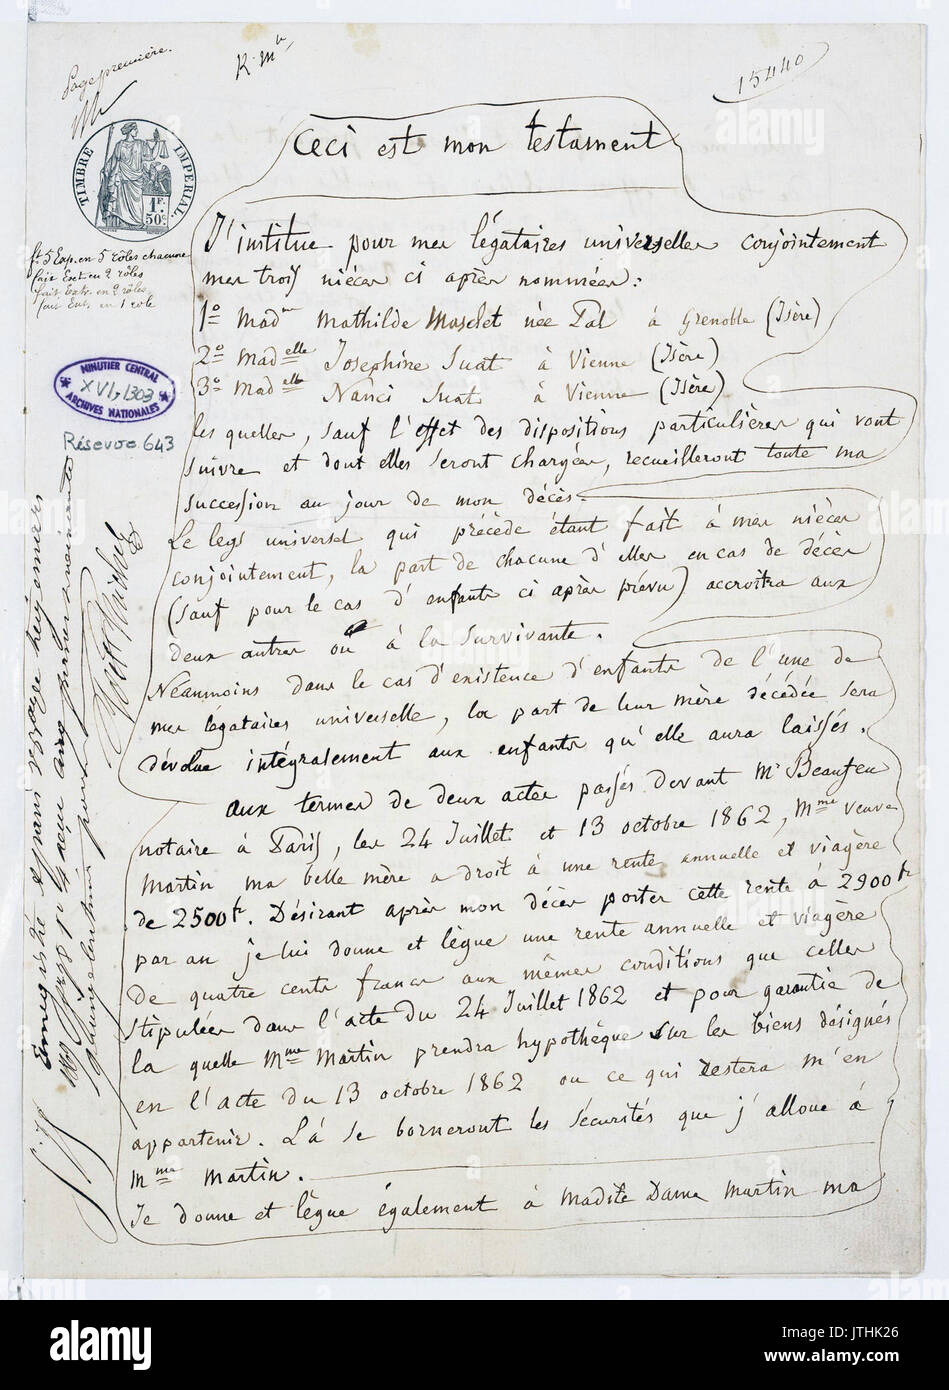 Page première.
K. Mu
15440
TIMBRE IMPERIAL.
1F. 50c.
Ceci est mon testament
J'institue pour mes légataires universelles conjointement
mes trois nièces ci après nommées :
1o Madme Mathilde Masclet née Pal à Grenoble (Isère)
2o Madelle Joséphine Suat à Vienne (Isère)
3o Madelle Nanci Suat à Vienne (Isère)
les quelles, sauf l'effet des dispositions particulières qui vont
suivre et dont elles seront chargées, recueilleront toute ma
succession au jour de mon décès.
Le legs universel qui précède étant fait à mes nièces
conjointement, la part de chacune d'elles en cas de décès
(sauf pour le cas d'enfants ci après prévu) accroîtra aux
deux autres ou à la survivante.
Néanmoins dans le cas d'existence d'enfants de l'une de
mes légataires universelle, la part de leur mère décédée sera
dévolue intégralement aux enfants qu'elle aura laissés.
aux termes de deux actes passés devant Me Beaufeu
notaire à Paris, les 24 Juillet et 13 octobre 1862, Mme veuve
Martin ma belle mère a droit à une rente annuelle et viagère
de 2500f. Désirant après mon décès porter cette rente à 2900f
par an je lui donne et lègue une rente annuelle et viagère
de quatre cents francs aux mêmes conditions que celles
stipulées dans l'acte du 24 Juillet 1862 et pour garantie de
la quelle Mme Martin prendra hypothèque sur les biens désignés
en l'acte du 13 octobre 1862 ou ce qui restera m'en
appartenir. Là se borneront les sécurités que j'alloue à
Mme Martin.
Je donne et lègue également à Madite Dame Martin ma
ft. 5 Exp. en 5 rôles chacune
fait Ext en 2 rôles
fait Extr. en 2 rôles
fait Ext. en 1 role
MINUTIER CENTRAL
XVI, 1303
ARCHIVES NATIONALES
Réserve 643
Enregistré
alamy
Image ID: JTHK26
www.alamy.com